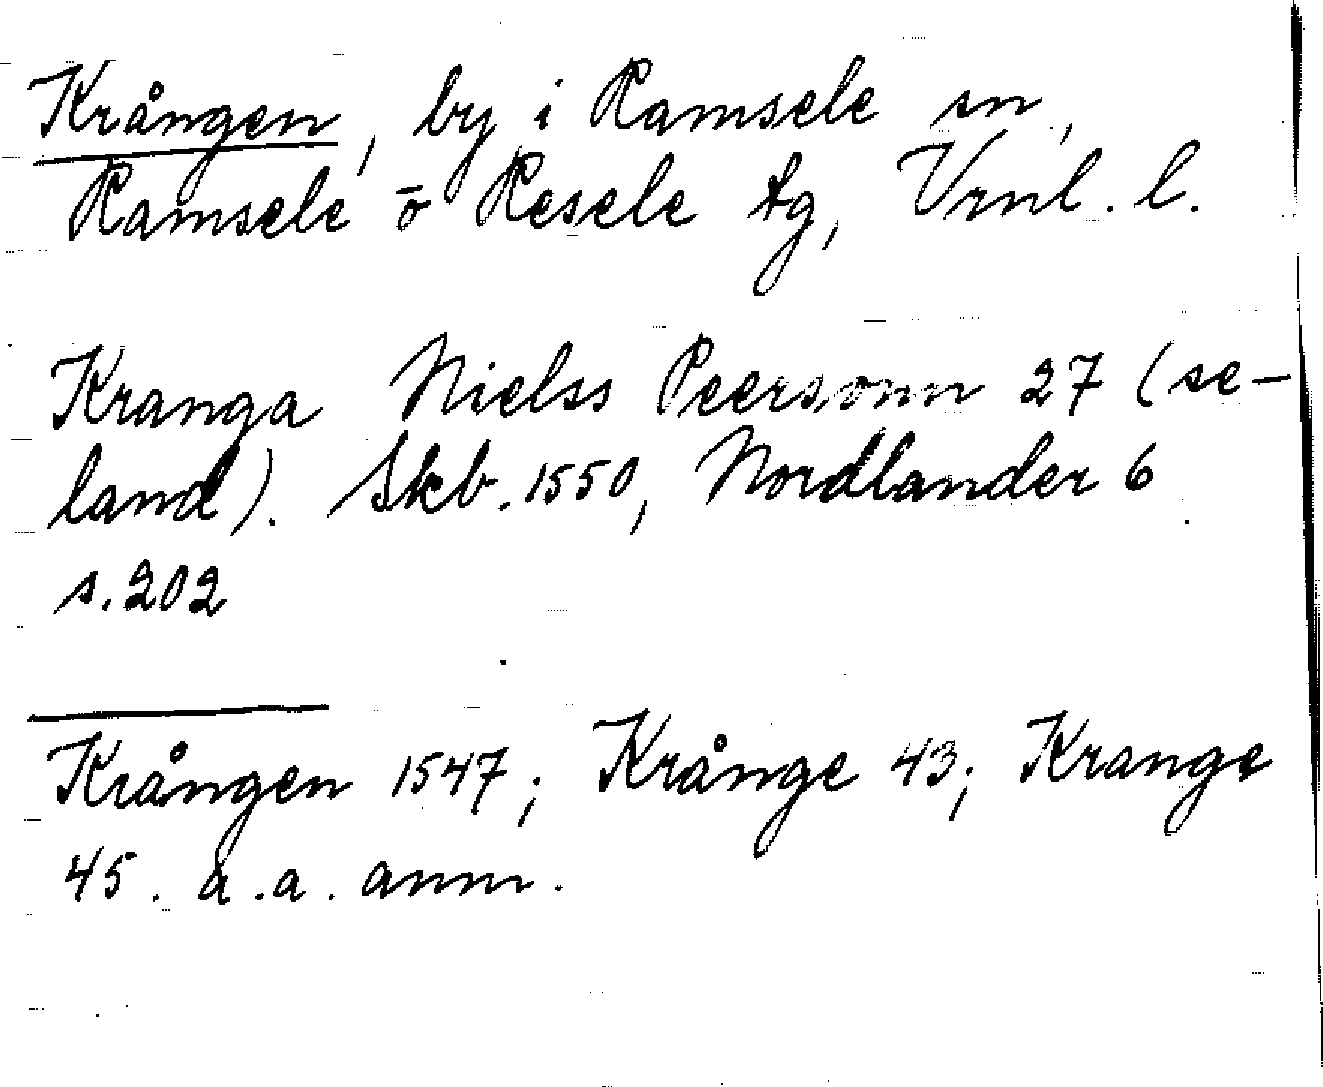 Krången, by i Ramsele sn,
Ramsele o Resele tg, Vrnl. l.
Kranga Nielss Peersonn 27 (se-
land). Skb. 1550, Nordlander 6
s. 202
Krången 1547; Krånge 43; Krange
45. a.a. anm.